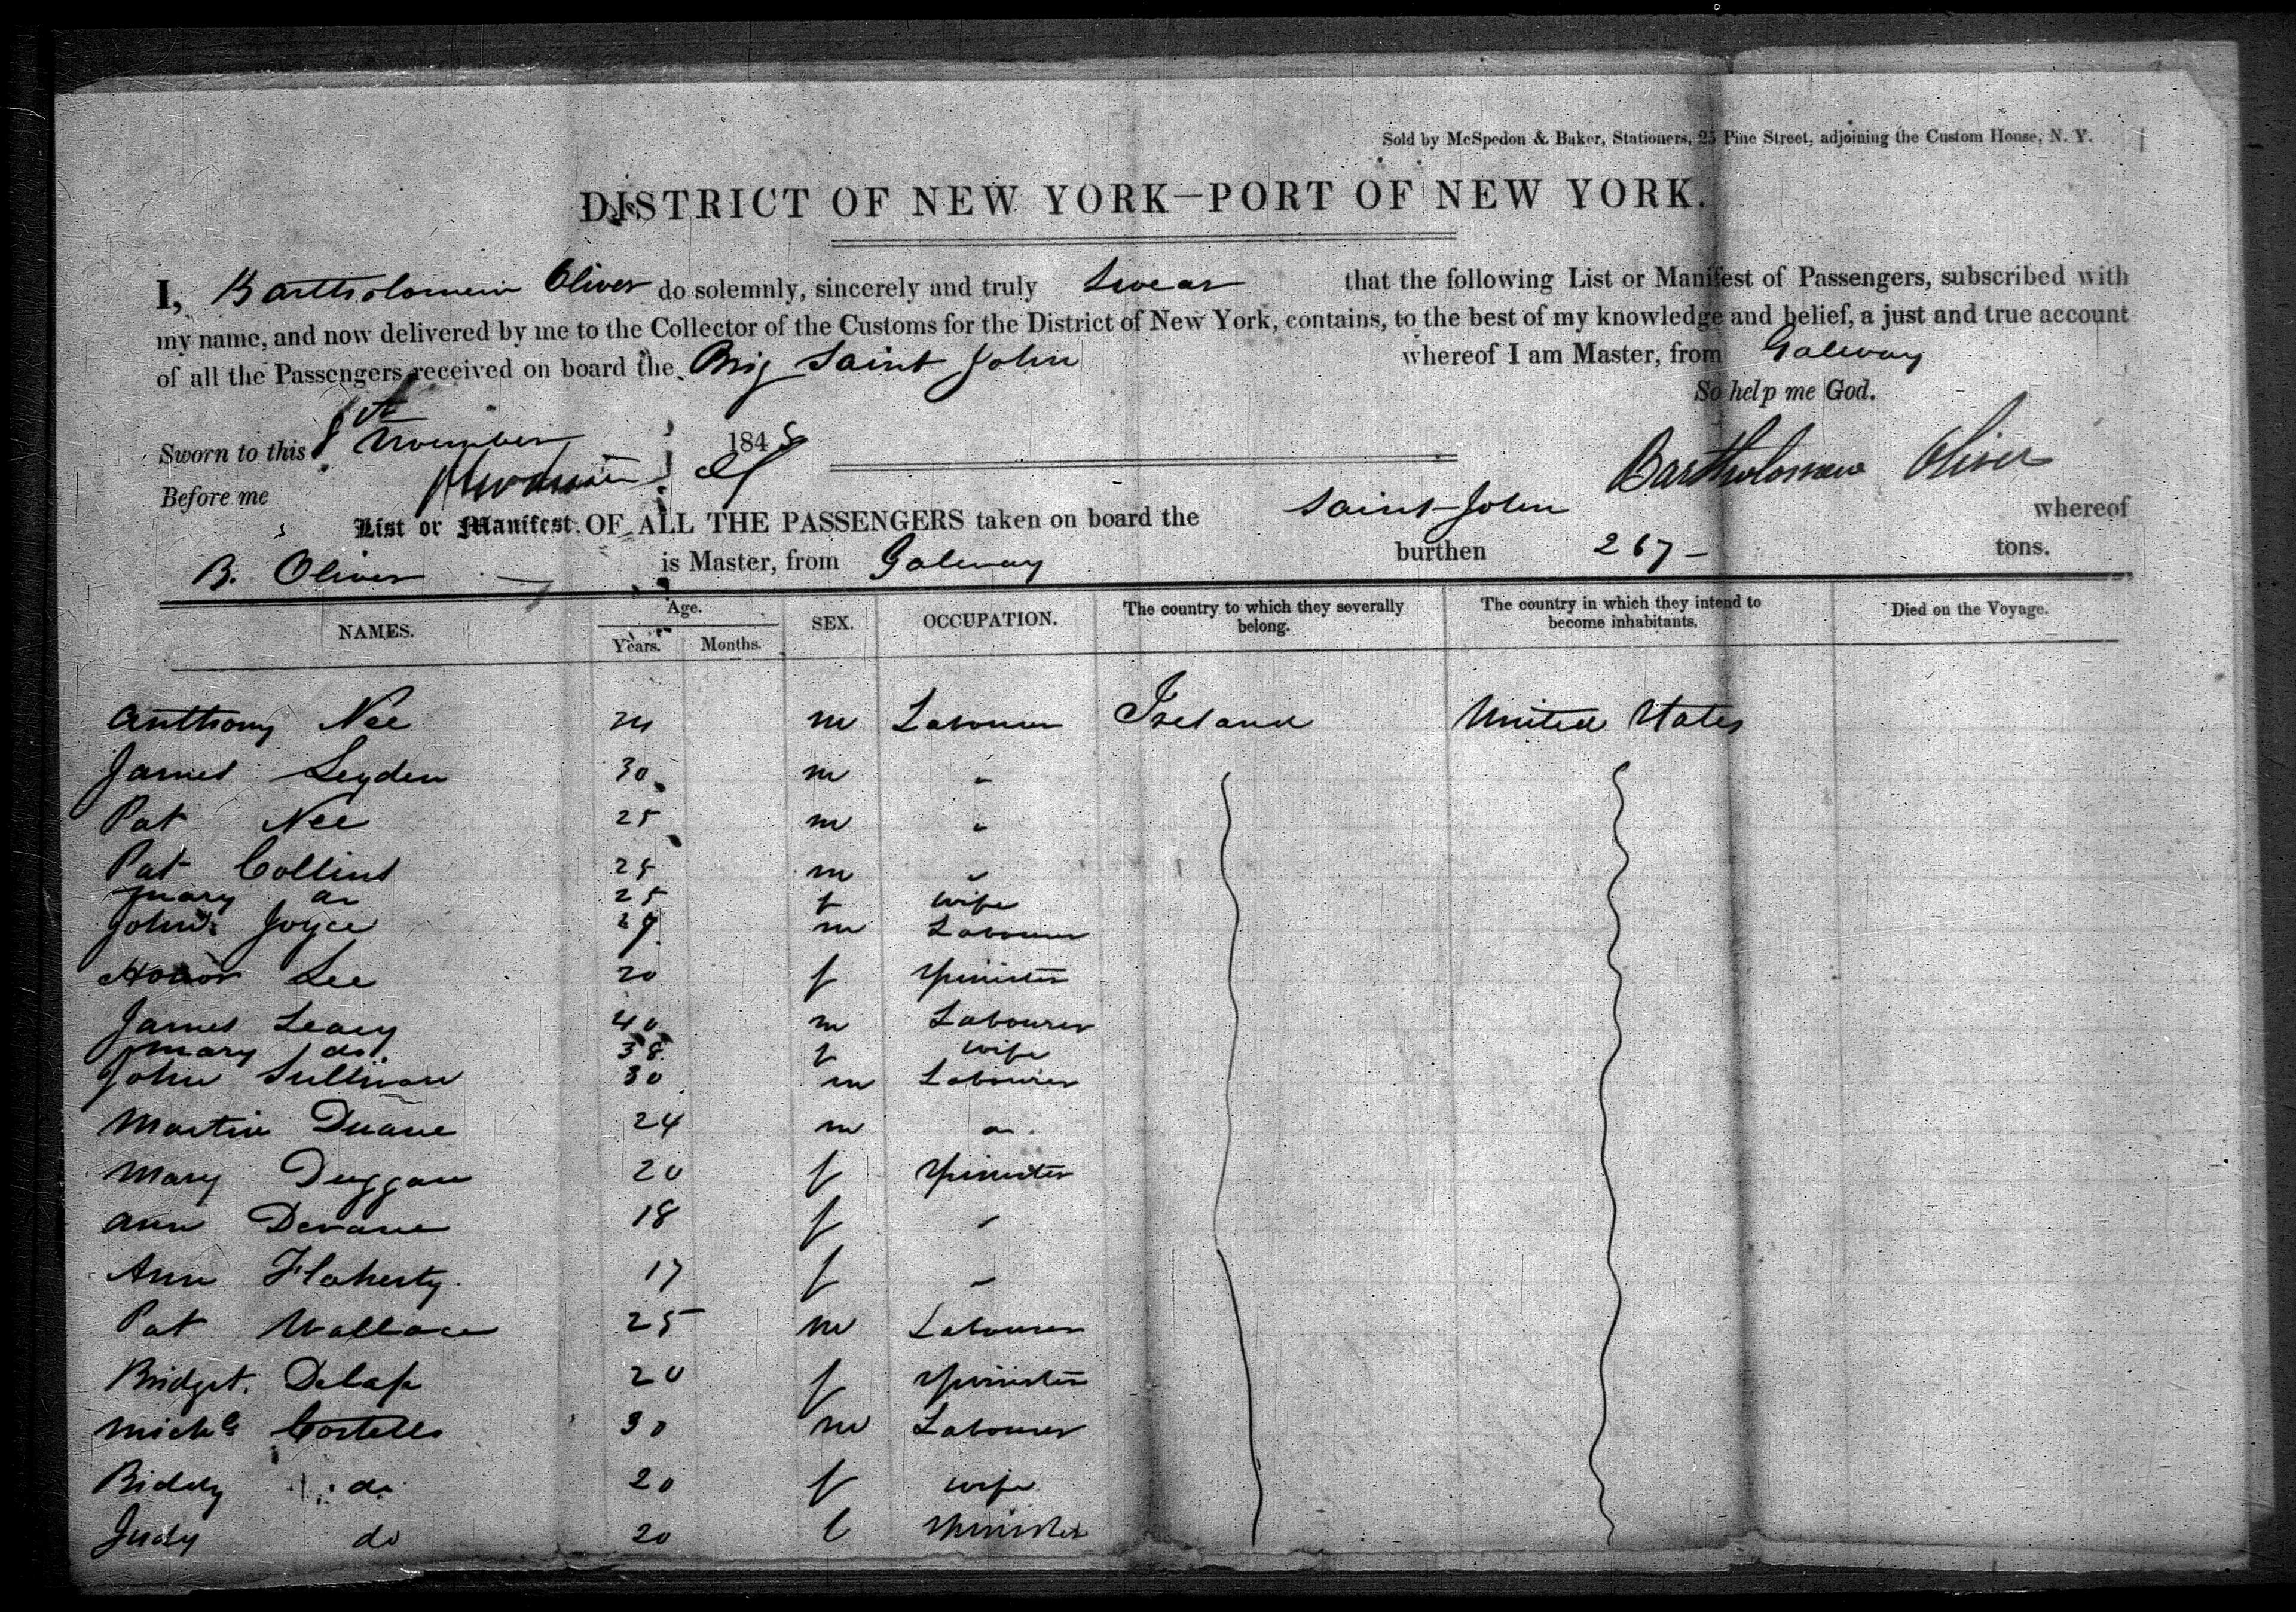 Sold by McSpedon & Baker, Stationers, 25 Pine Street, adjoining the Custom House, N. Y.
DISTRICT OF NEW YORK—PORT OF NEW YORK.
I, Bartholomew Oliver do solemnly, sincerely and truly Swear that the following List or Manifest of Passengers, subscribed with
my name, and now delivered by me to the Collector of the Customs for the District of New York, contains, to the best of my knowledge and belief, a just and true account
of all the Passengers received on board the Brig Saint John whereof I am Master, from Galway
So help me God.
Sworn to this 8th November 1848
Before me
Bartholomew Oliver
List or Manifest OF ALL THE PASSENGERS taken on board the Saint John whereof
B. Oliver is Master, from Galway burthen 267 — tons.
NAMES. Age. Years. Months. SEX. OCCUPATION. The country to which they severally belong. The country in which they intend to become inhabitants. Died on the Voyage.
Anthony Nee m Labourer Ireland United States
James Leyden 30 m "
Pat Nee 25 m "
Pat Collins 25 m "
Mary do 25 f wife
John Joyce m Labourer
Honor Lee 20 f Spinster
James Leary 40 m Labourer
Mary do 38 f wife
John Sullivan 30 m Labourer
Martin Duane 24 m do
Mary Duggan 20 f Spinster
Ann Devane 18 f "
Ann Flaherty 17 f "
Pat Wallace 25 m Labourer
Bridget Delap 20 f Spinster
Michl Costello 30 m Labourer
Biddy do 20 f wife
Judy do 20 f Spinster